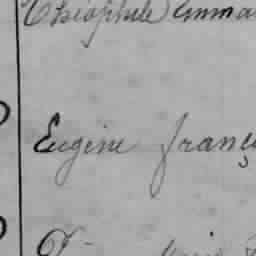 Théophile Emma
Eugène franç